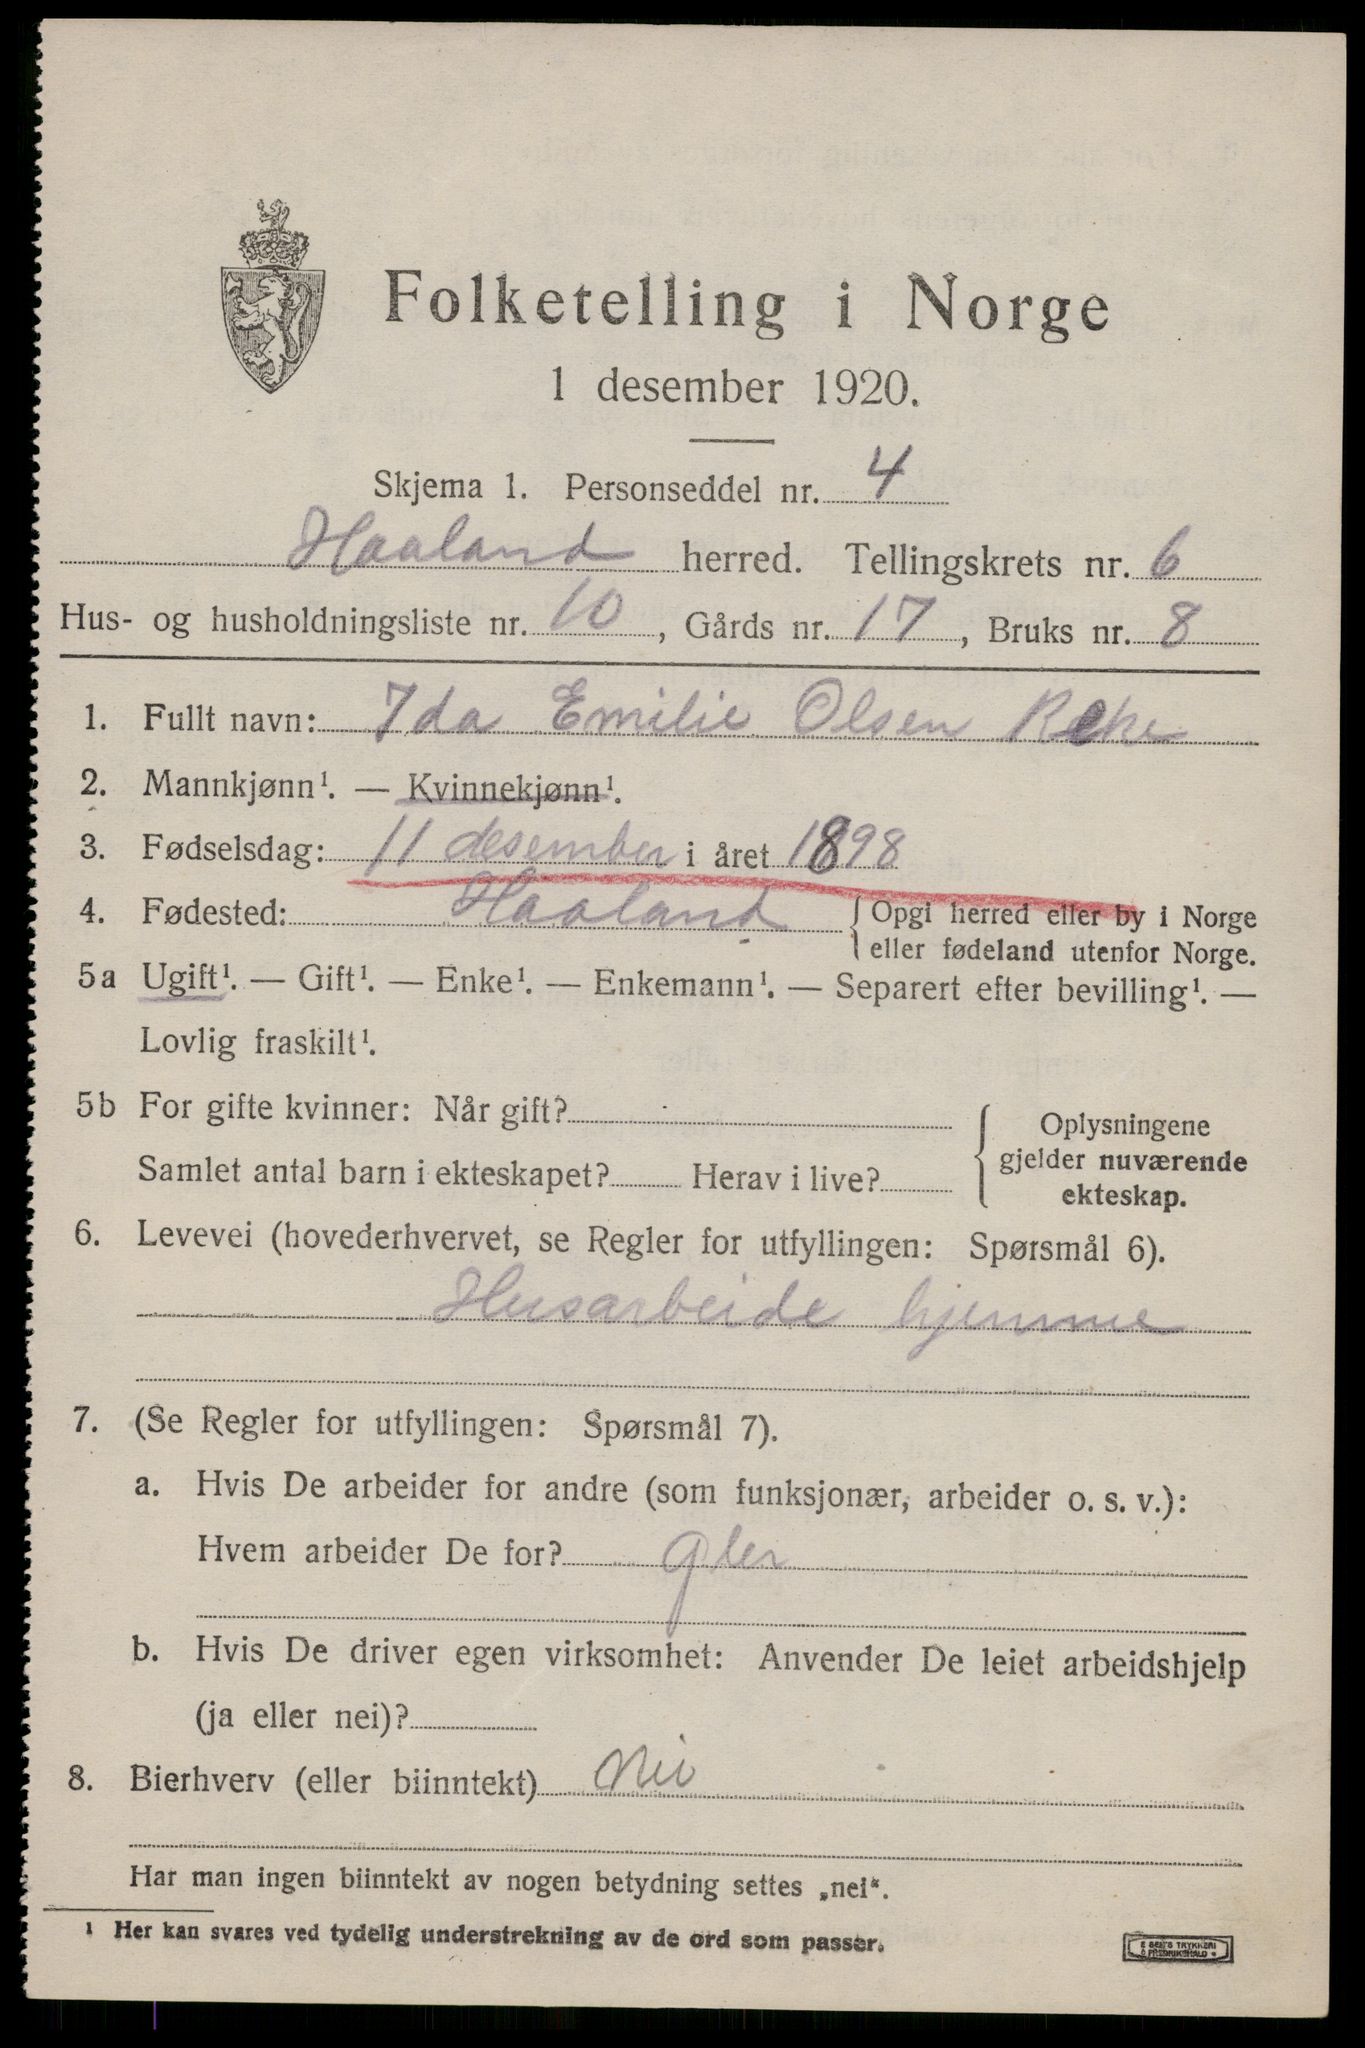 Folketelling i Norge
1 desember 1920.
Skjema 1. Personseddel nr. 4
Haaland herred. Tellingskrets nr. 6
Hus- og husholdningsliste nr. 10, Gårds nr. 17, Bruks nr. 8
1. Fullt navn: Ida Emilie Olsen Reke
2. Mannkjønn¹. — Kvinnekjønn¹.
3. Fødselsdag: 11 desember i året 1898
4. Fødested: Haaland { Opgi herred eller by i Norge
eller fødeland utenfor Norge.
5a Ugift¹. — Gift¹. — Enke¹. — Enkemann¹. — Separert efter bevilling¹. —
Lovlig fraskilt¹.
5b For gifte kvinner: Når gift?
Samlet antal barn i ekteskapet? Herav i live?
{ Oplysningene
gjelder nuværende
ekteskap.
6. Levevei (hovederhvervet, se Regler for utfyllingen: Spørsmål 6).
Husarbeide hjemme
7. (Se Regler for utfyllingen: Spørsmål 7).
a. Hvis De arbeider for andre (som funksjonær, arbeider o. s. v.):
Hvem arbeider De for?
b. Hvis De driver egen virksomhet: Anvender De leiet arbeidshjelp
(ja eller nei)?
8. Bierhverv (eller biinntekt) Nei
Har man ingen biinntekt av nogen betydning settes „nei“.
¹ Her kan svares ved tydelig understrekning av de ord som passer.